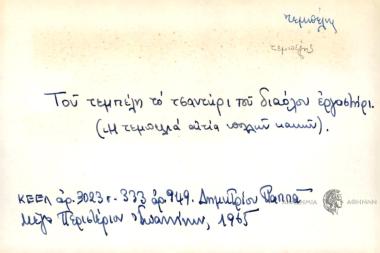 τεμπέλης
τεμπέλης
Τοῦ τεμπέλη τό τσαντήρι τοῦ διαόλου ἐργαστήρι.
(Ἡ τεμπελιά αἰτία πολλῶν κακῶν).
ΚΕΕΛ ἀρ. 3023 σ. 333 ἀρ. 949. Δημητρίου Παππᾶ
Μέγα Περιστέριον Ἰωαννίνων, 1965
ΑΘΗΝΩΝ